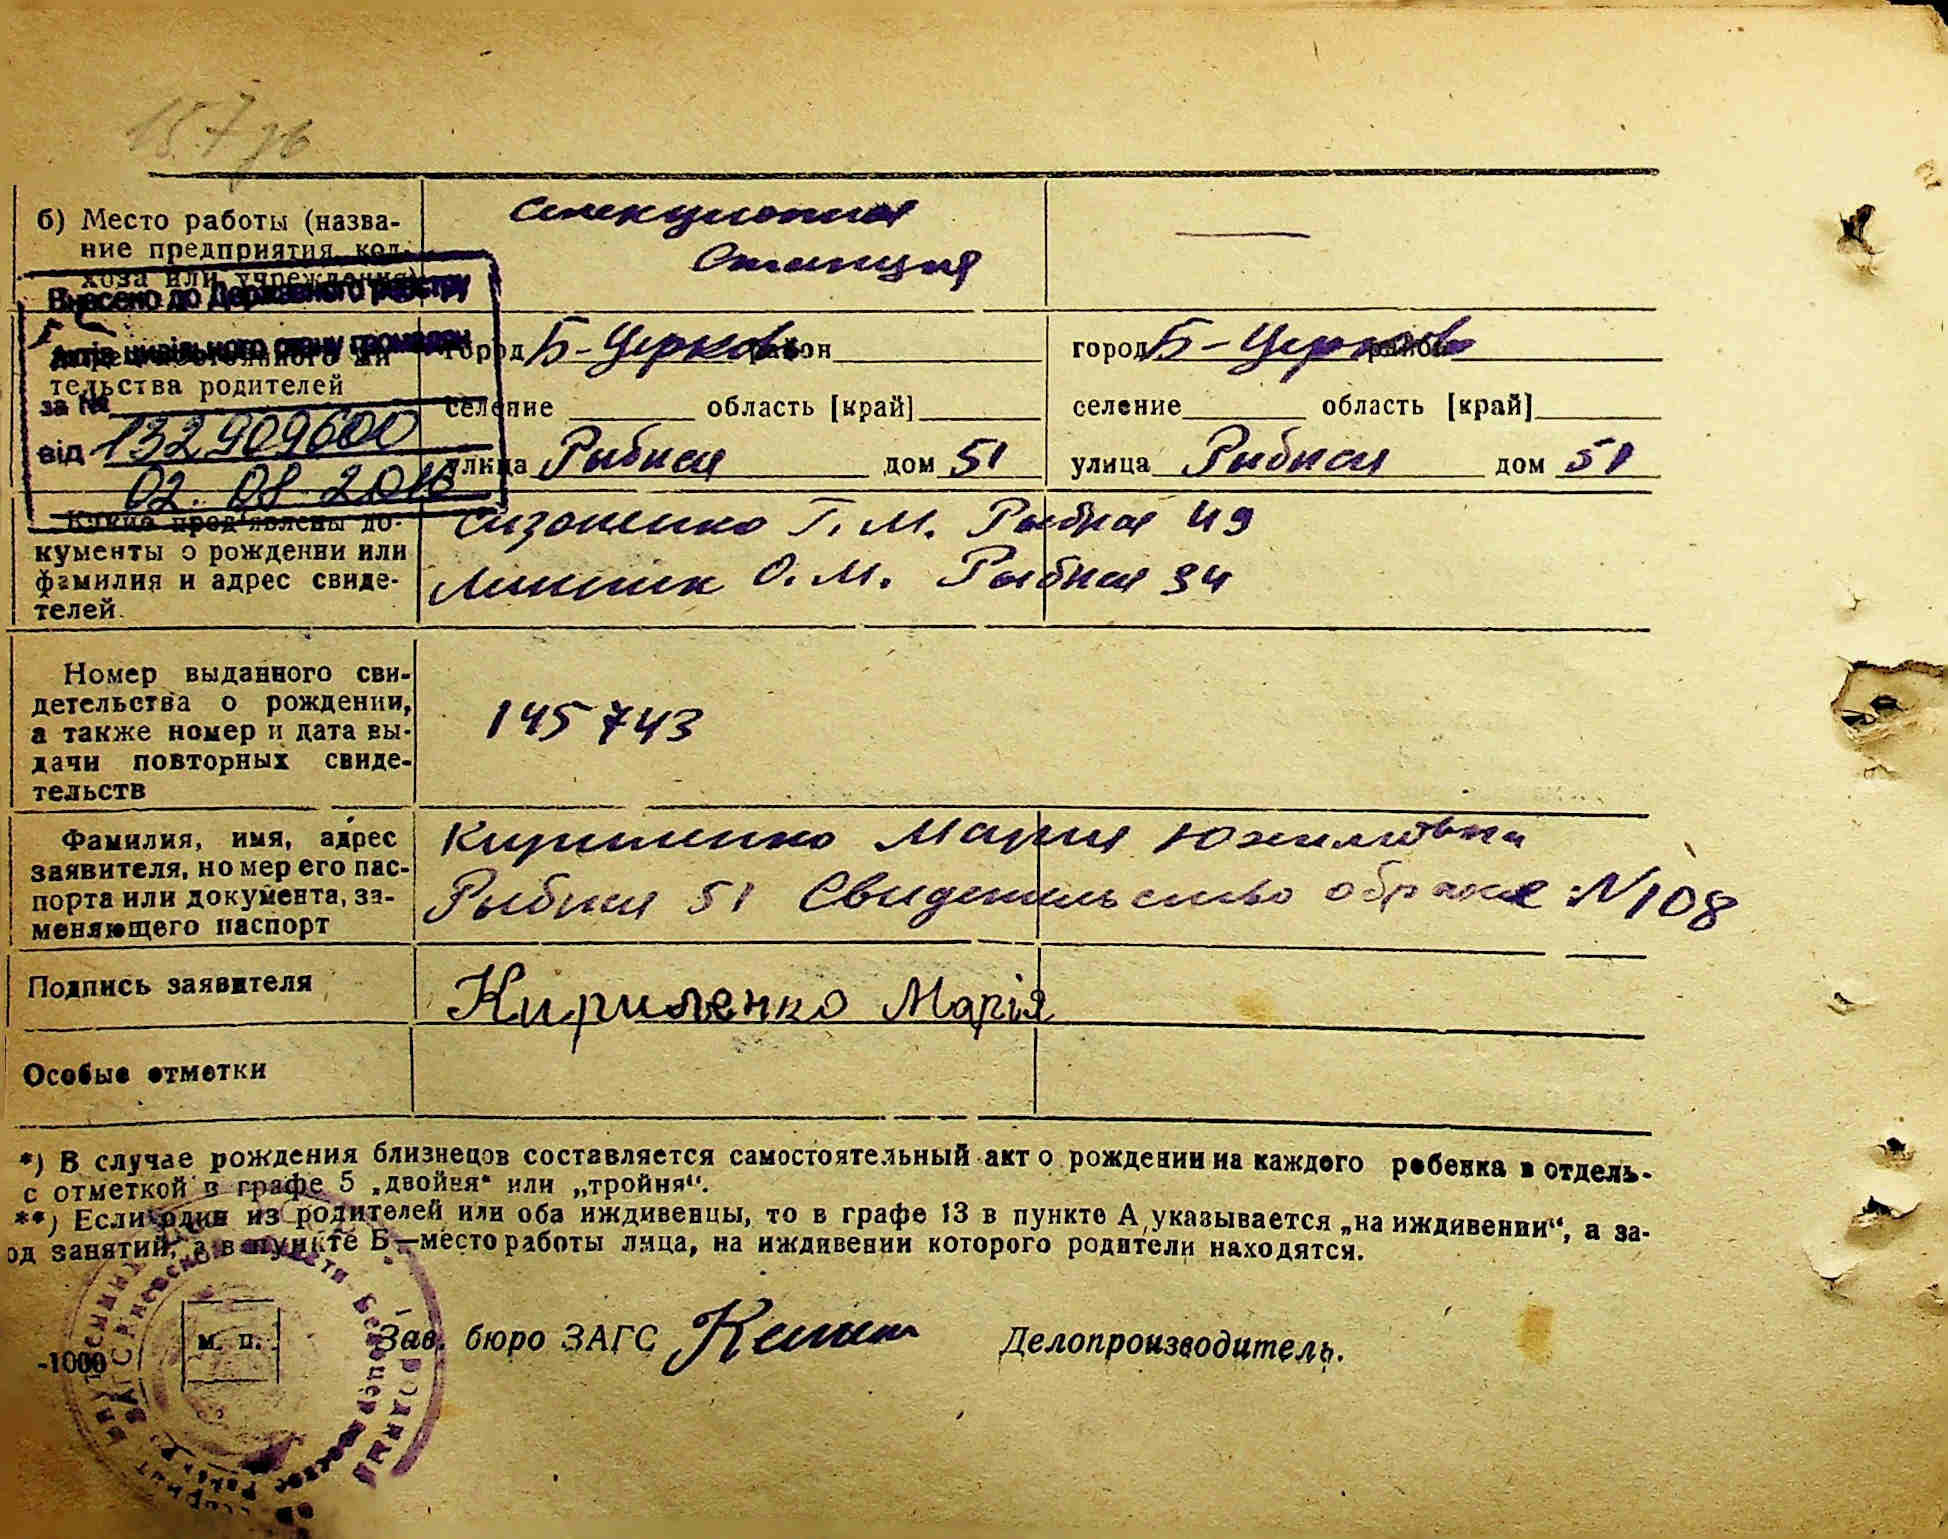 157
б) Место работы (назва-
ние предприятия, кол-
хоза или учреждения)
селекционная
Станция
Внесено до Державного реєстру
Актів цивільного стану громадян
за №
від 132909600
02. 08 2016
тельства родителей
город Б-Церковь район
селение область [край]
улица Рыбная дом 51
город Б-Церковь район
селение область [край]
улица Рыбная дом 51
Какие пред'явлены до-
кументы о рождении или
фамилия и адрес свиде-
телей.
Сизоненко Г. М. Рыбная 49
О. М. Рыбная 34
Номер выданного сви-
детельства о рождении,
а также номер и дата вы-
дачи повторных свиде-
тельств
145743
Фамилия, имя, адрес
заявителя, номер его пас-
порта или документа, за-
меняющего паспорт
Кириленко Мария
Рыбная 51 Свидетельство о браке №108
Подпись заявителя
Кириленко Марія
Особые отметки
*) В случае рождения близнецов составляется самостоятельный акт о рождении на каждого ребенка в отдель-
с отметкой в графе 5 „двойня“ или „тройня“.
**) Если один из родителей или оба иждивенцы, то в графе 13 в пункте А указывается „на иждивении“, а за-
од занятий, а в пункте Б—место работы лица, на иждивении которого родители находятся.
м. п.
Зав. бюро ЗАГС
Делопроизводитель.
-1000